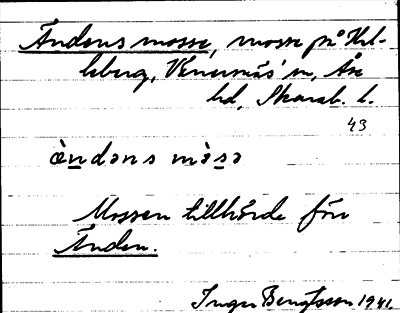 Ändens mosse, mosse på Kil-
leberg, Venersnäs' sn, Åse
hd, Skarab. l.
43
ö̀ndəns mòsə
Mossen tillhörde för
Änden.
Inger Bengtsson 1941.